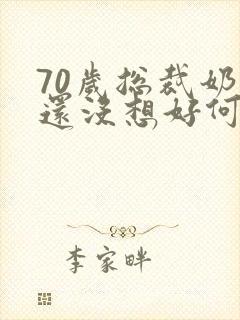 70歲總裁奶
還沒想好何
李家畔